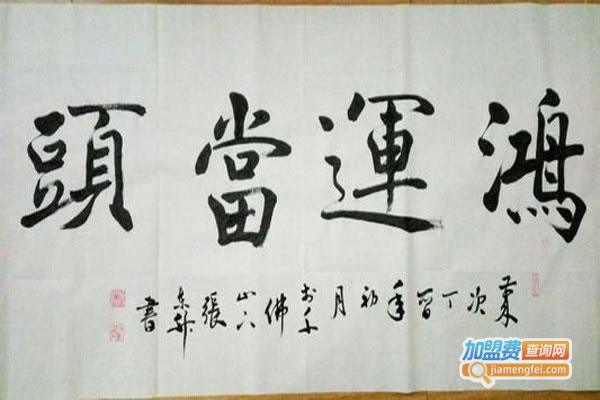 鴻運當頭
歲次丁酉年初月於千佛山下張東書
加盟费查询网
jiamengfei.com